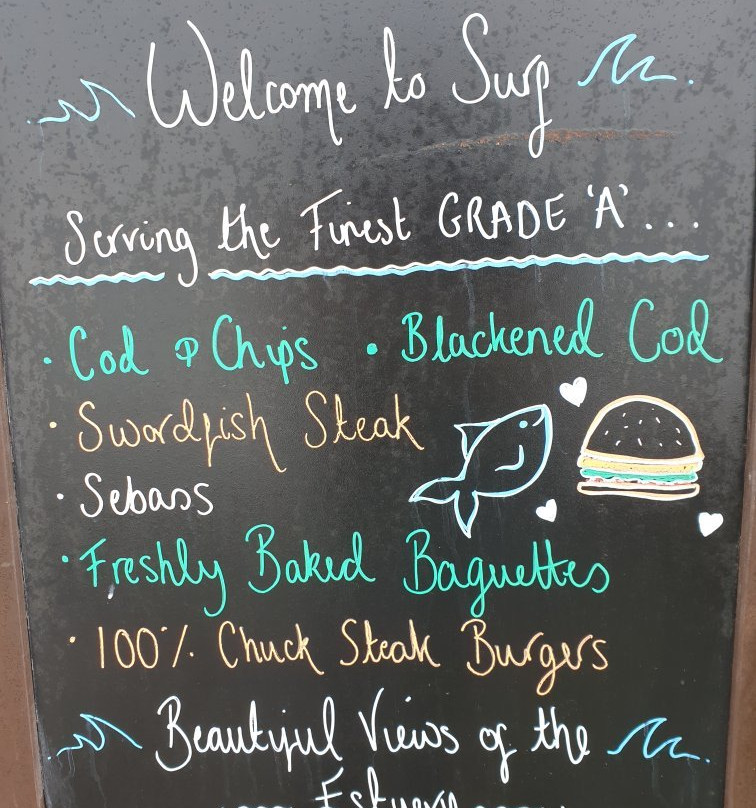 Welcome to Surf
Serving the Finest GRADE 'A'...
· Cod & Chips · Blackened Cod
· Swordfish Steak
· Sebass
· Freshly Baked Baguettes
· 100% Chuck Steak Burgers
Beautiful Views of the
Estuary